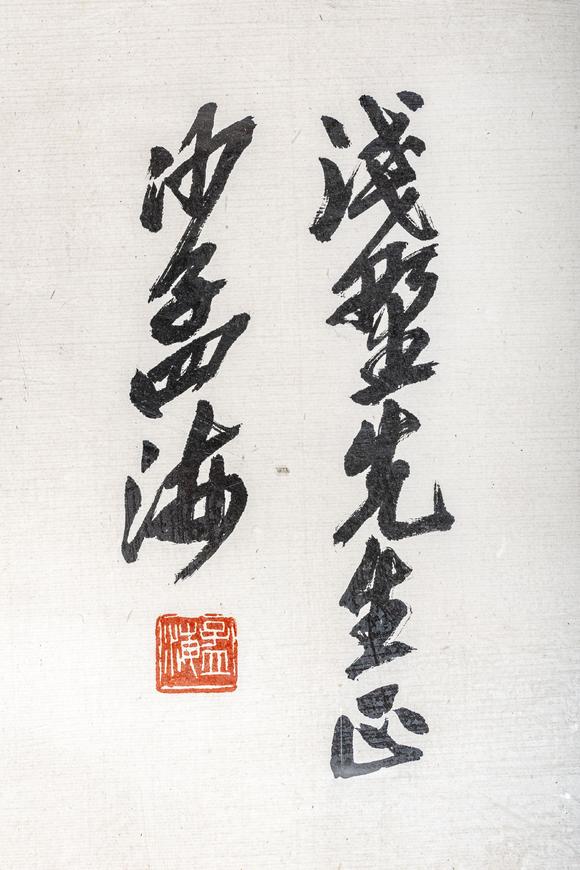 淺野先生正
沙孟海
孟海